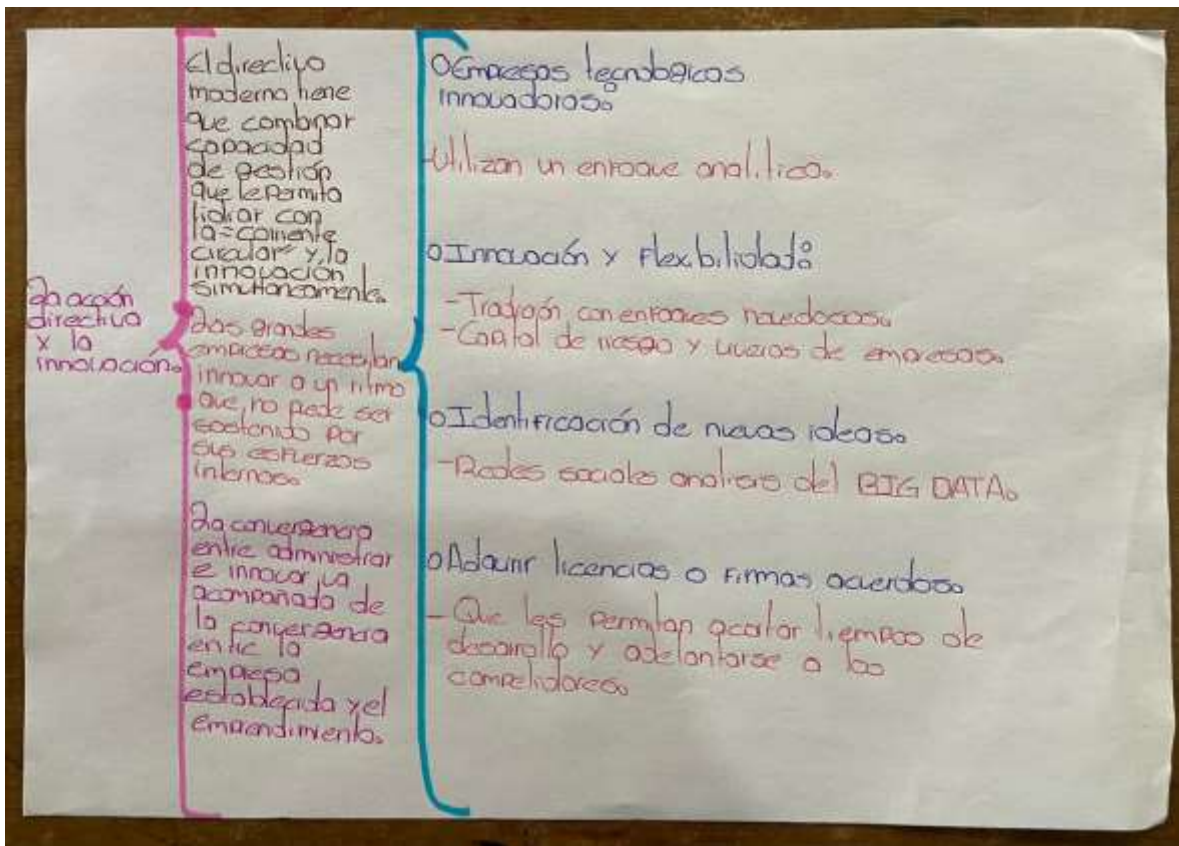 La acción
directiva
y la
innovación.
El directivo
moderno tiene
que combinar
capacidad
de gestión
que le permita
lidiar con
la "corriente
circular" y, la
innovación
simultáneamente.
Las grandes
empresas necesitan
innovar a un ritmo
que, no puede ser
sostenido por
sus esfuerzos
internos.
La convergencia
entre administrar
e innovar va
acompañada de
la convergencia
entre la
empresa
establecida y el
emprendimiento.
o Empresas tecnológicas
innovadoras:
-Utilizan un enfoque analítico.
o Innovación y Flexibilidad:
-Trabajan con enfoques novedosos.
-Capital de riesgo y viveros de empresas.
o Identificación de nuevas ideas.
-Redes sociales analisis del BIG DATA.
o Adquirir licencias o firmas acuerdos.
- Que les permitan acortar tiempos de
desarrollo y adelantarse a los
competidores.